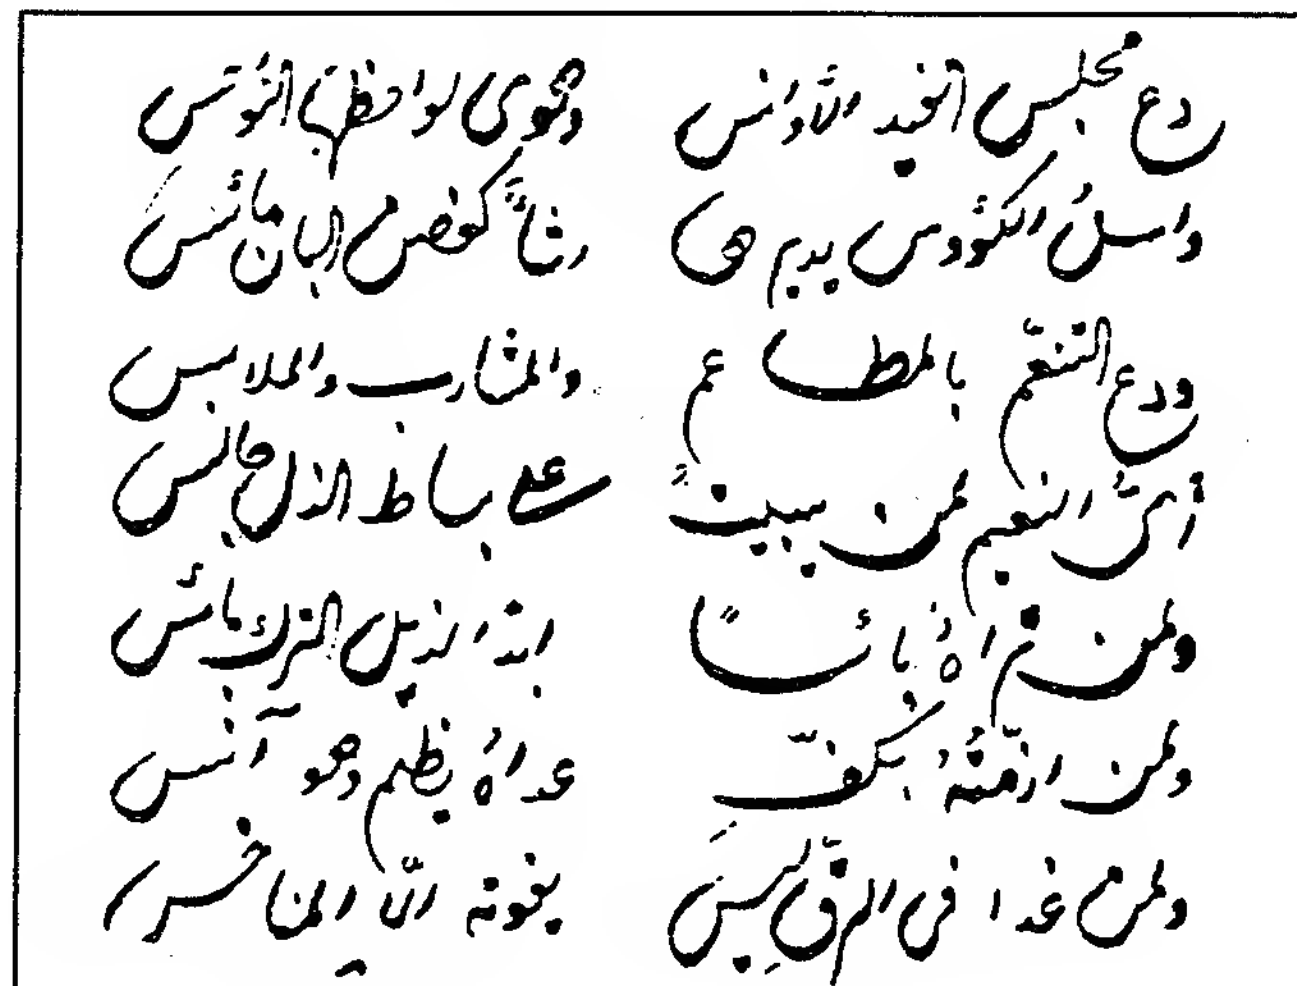 دع مجلس الغيد الأوانس وهوى لواحظها النواعس
واسلُ الكؤوس يديرهن رشأٌ كغصن البان مائس
ودع التنعّم بالمطاعم والمشارب والملابس
أيُّ النعيم لمن يبيت على بساط الذل جالس
ولمن تراهُ بائساً ابداً لذيل الترك بائس
ولمن ازمّتهُ بكفّ عداهُ يظلم وهو آنس
ولمن غدا في الرقّ ليس يفوته الّا المناخس